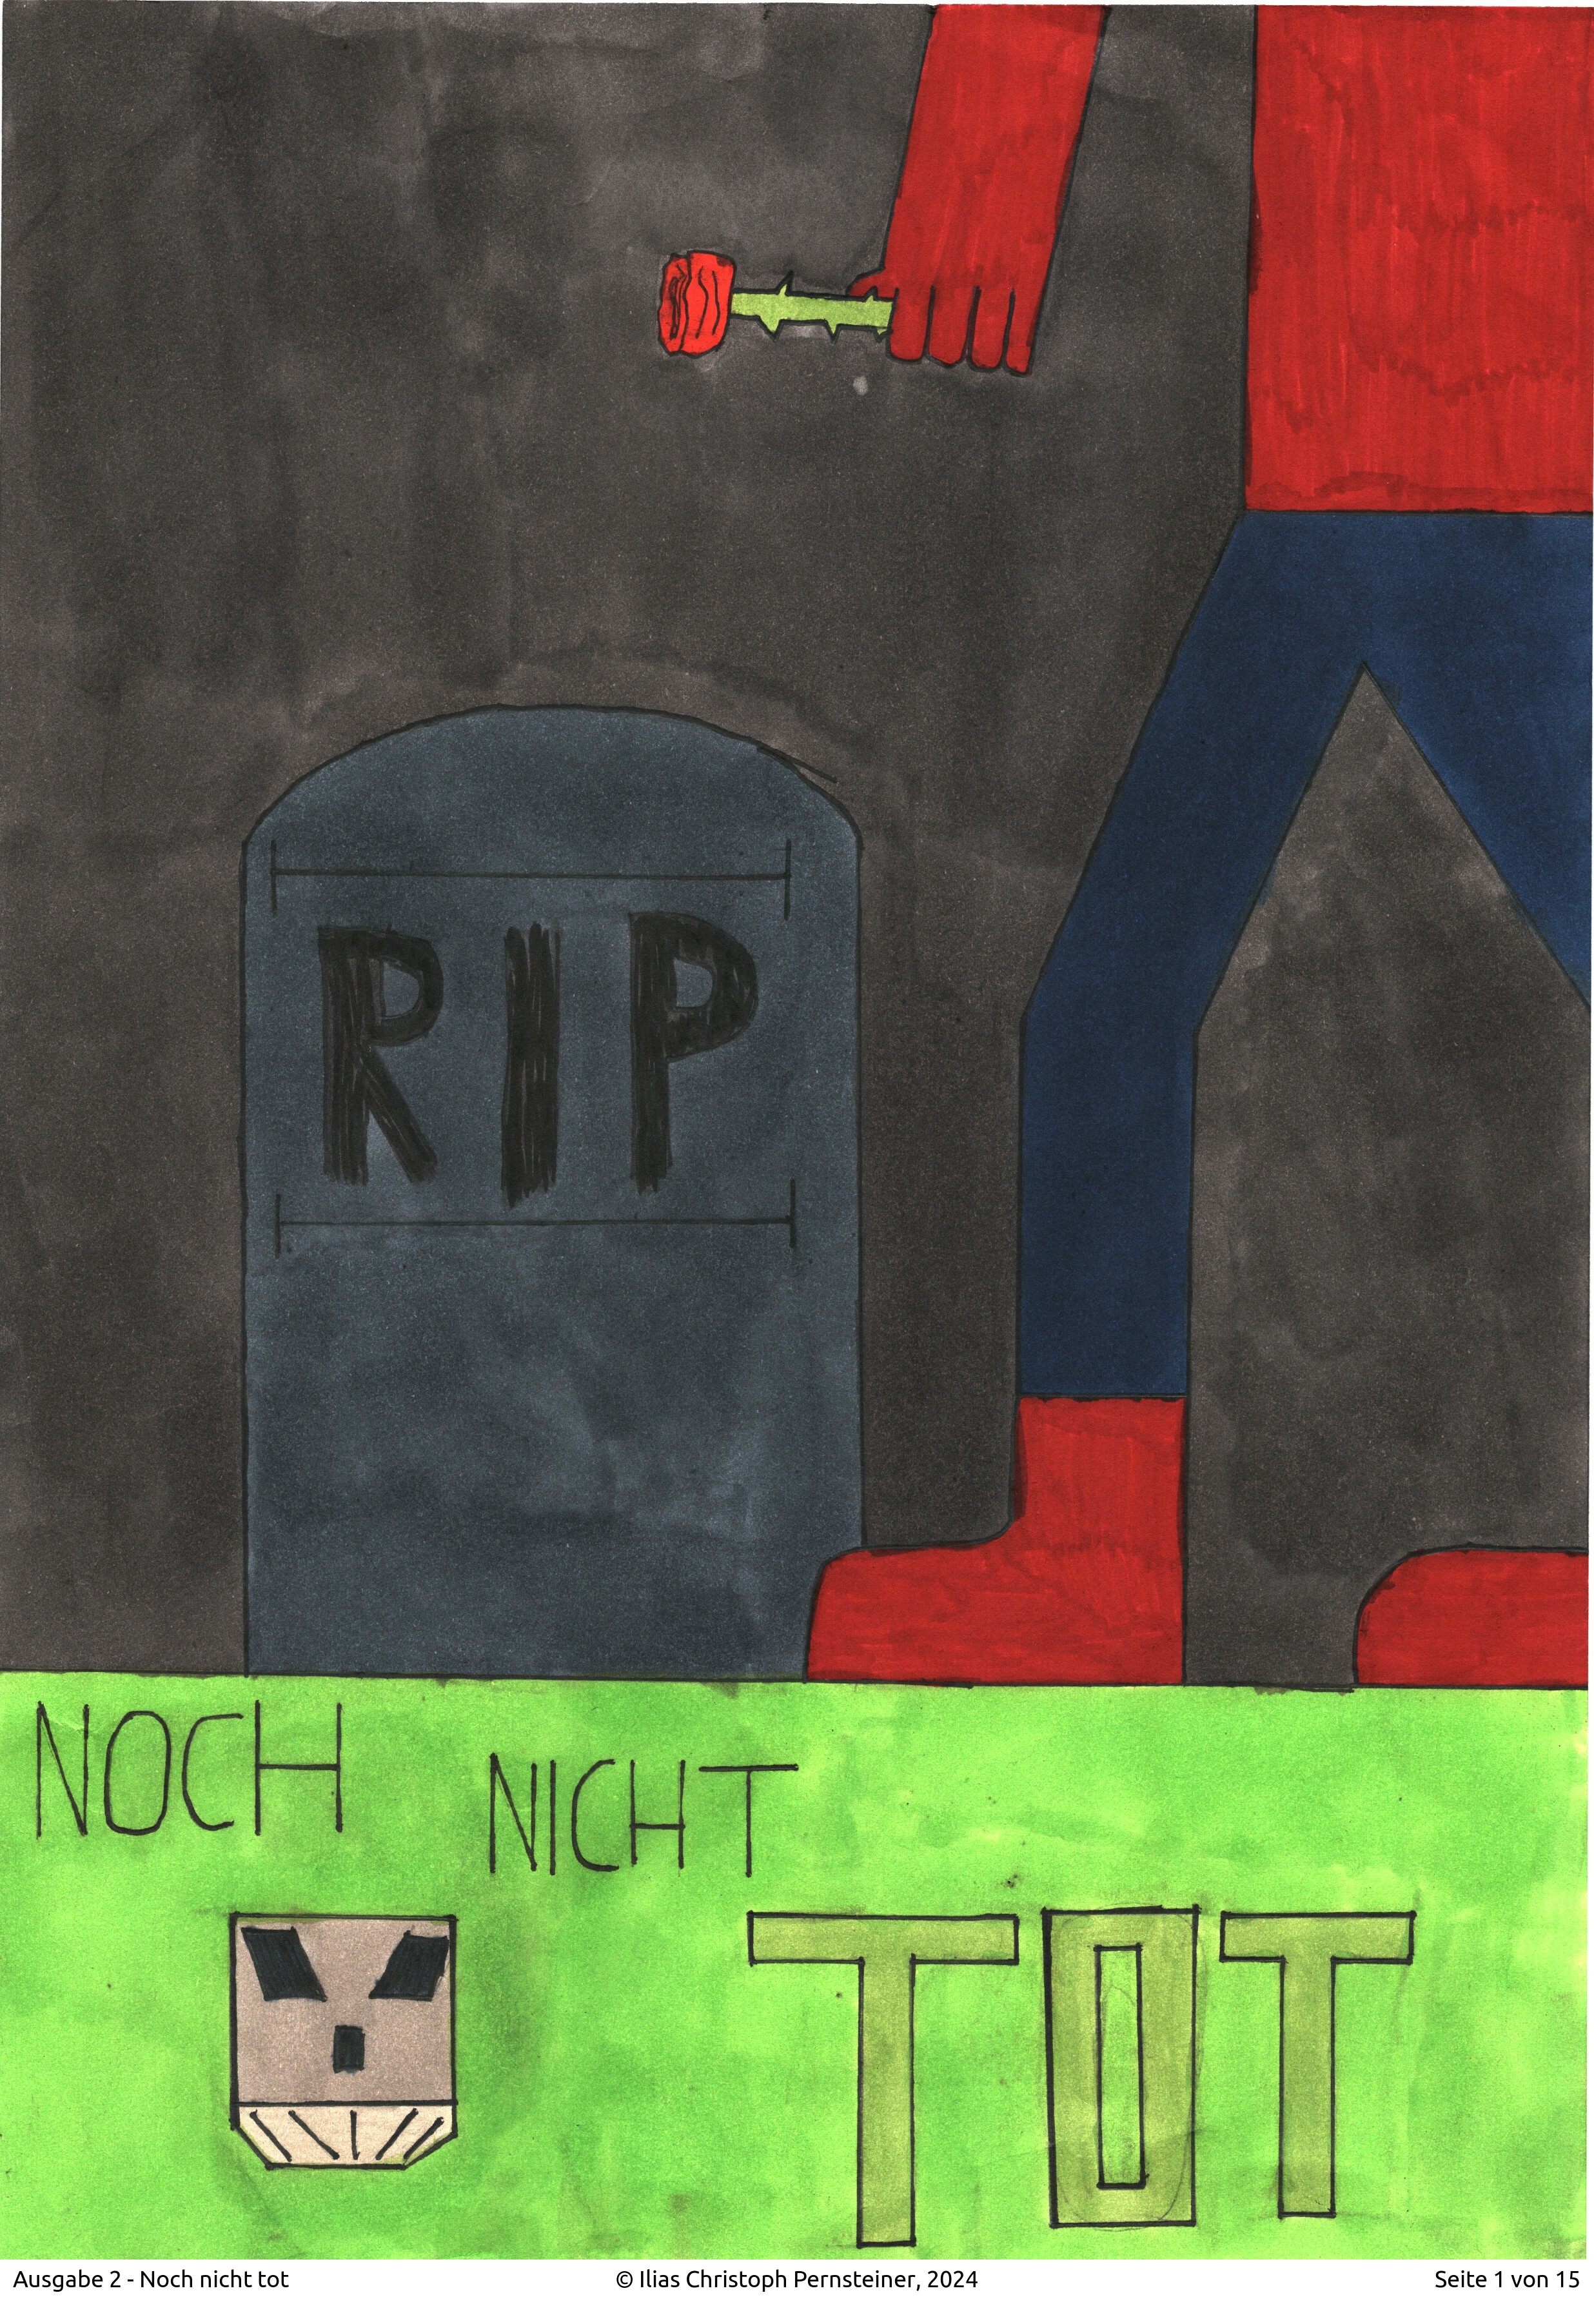 RIP
NOCH
NICHT
TOT
Ausgabe 2 - Noch nicht tot
© Ilias Christoph Pernsteiner, 2024
Seite 1 von 15